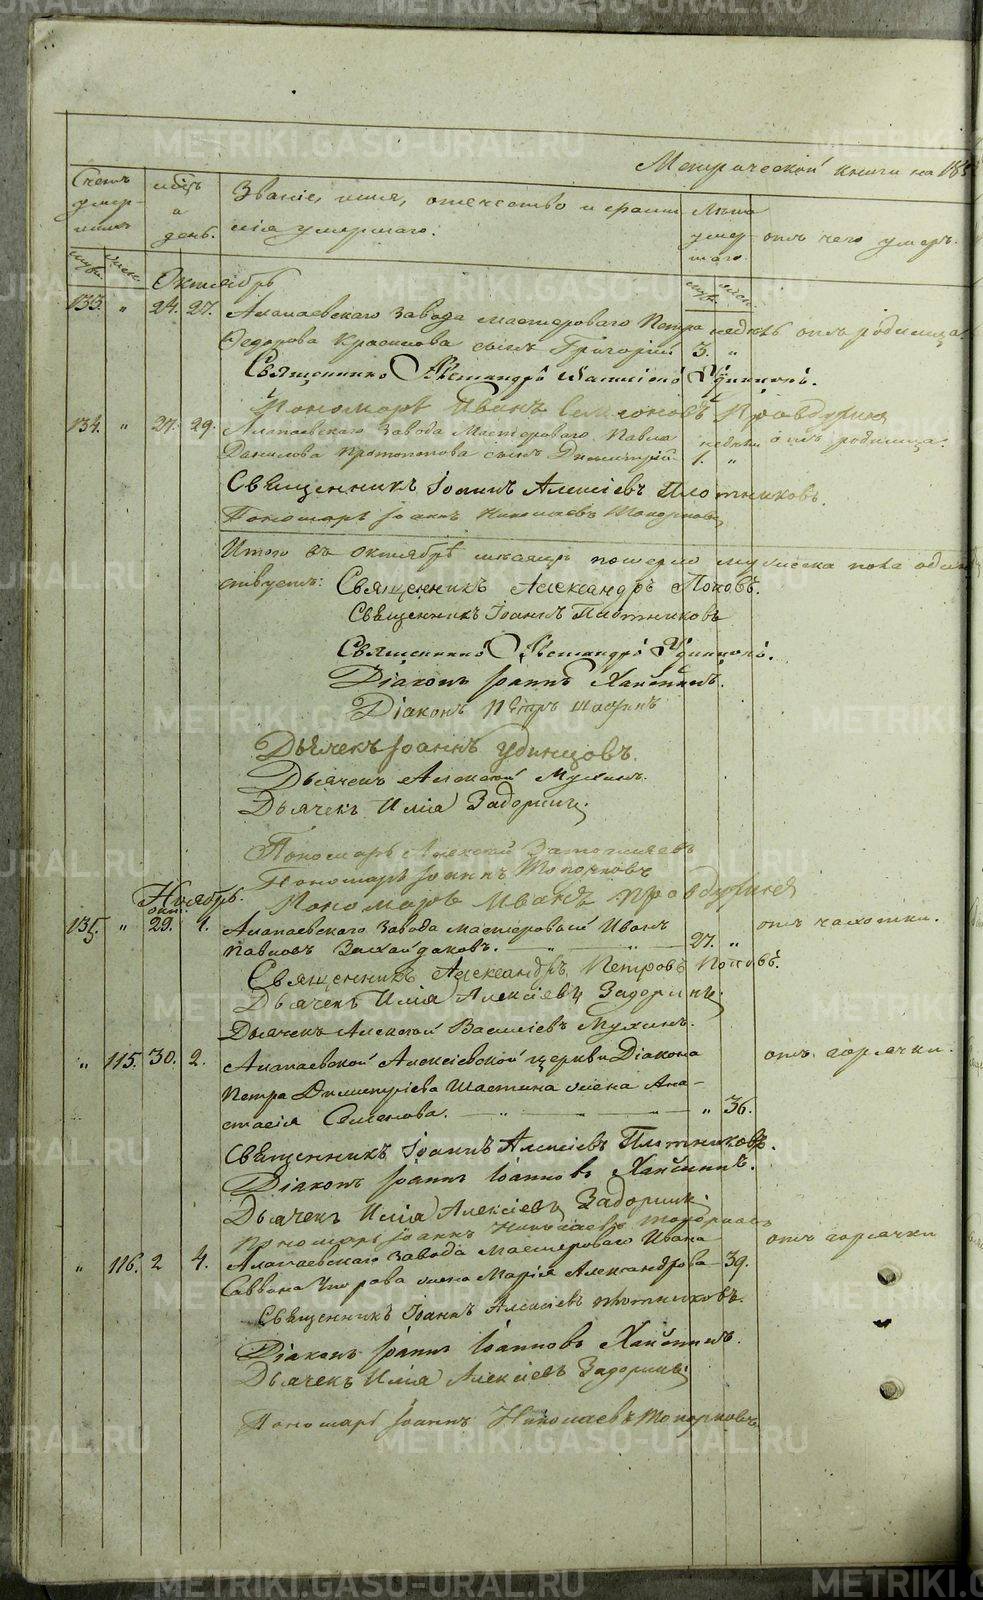 METRIKI.GASO-URAL.RU
Метрической книги на 185
Счетъ умер- шихъ
мѣсяцъ и день.
Званіе, имя, отечество и фами- лія умершаго.
Лѣта умер- шаго.
отъ чего умеръ.
муж. женс.
муж. женс.
Октябрь
133. " 24. 27. Алапаевскаго Завода мастероваго Петра недѣль отъ родимца.
Федорова сынъ Григорій 3. "
Священникъ Александръ Удинцовъ.
Пономарь Иванъ Правдухинъ
134. " 27. 29. Алапаевскаго Завода Мастероваго Павла недѣли отъ родимца.
Данилова Протопопова сынъ Димитрій 1. "
Священникъ Іоаннъ Алексіевъ Плотниковъ.
Пономарь Іоаннъ Николаевъ Топорковъ
Итого въ Октябрѣ мѣсяцѣ померло мужеска пола
ствуетъ: Священникъ Александръ Поповъ.
Священникъ Іоаннъ Плотниковъ
Священникъ Александръ Удинцовъ.
Діаконъ Іоаннъ
Діаконъ Петръ Шастинъ
Дьячекъ Іоаннъ Удинцовъ.
Дьячекъ Алексѣй Мухинъ.
Дьячекъ Илія Задоринъ.
Пономарь Алексѣй
Пономарь Іоаннъ Топорковъ
Пономарь Иванъ Правдухинъ
Ноябрь.
окт.
135. " 29. 1. Алапаевскаго Завода мастеровой Иванъ отъ чахотки.
Павловъ 27. "
Священникъ Александръ Петровъ Поповъ.
Дьячекъ Илія Алексіевъ Задоринъ.
Дьячекъ Алексѣй Василіевъ Мухинъ.
" 115. 30. 2. Алапаевской Алексіевской церкви Діакона отъ горячки.
Петра Димитріева Шастина жена Ана-
стасія Семенова. " " 36.
Священникъ Іоаннъ Алексіевъ Плотниковъ.
Діаконъ Іоаннъ Іоанновъ
Дьячекъ Илія Алексіевъ Задоринъ.
Пономарь Іоаннъ Николаевъ Топорковъ
" 116. 2 4. Алапаевскаго Завода Мастероваго Ивана отъ горячки
Саввина жена Марія Александрова 39.
Священникъ Іоаннъ Алексіевъ Плотниковъ.
Діаконъ Іоаннъ Іоанновъ
Дьячекъ Илія Алексіевъ Задоринъ.
Пономарь Іоаннъ Николаевъ Топорковъ
METRIKI.GASO-URAL.RU